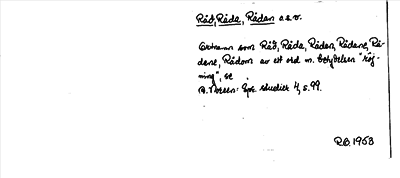 Råd, Råda, Rådan o.s.v.
Ortnamn som Råd, Råda, Rådan, Rådane, Rå-
dene, Rådom av ett ord m. betydelsen "röj-
ning", se
A. Noreen: Spr. studier 4, s. 99.
R.B. 1953